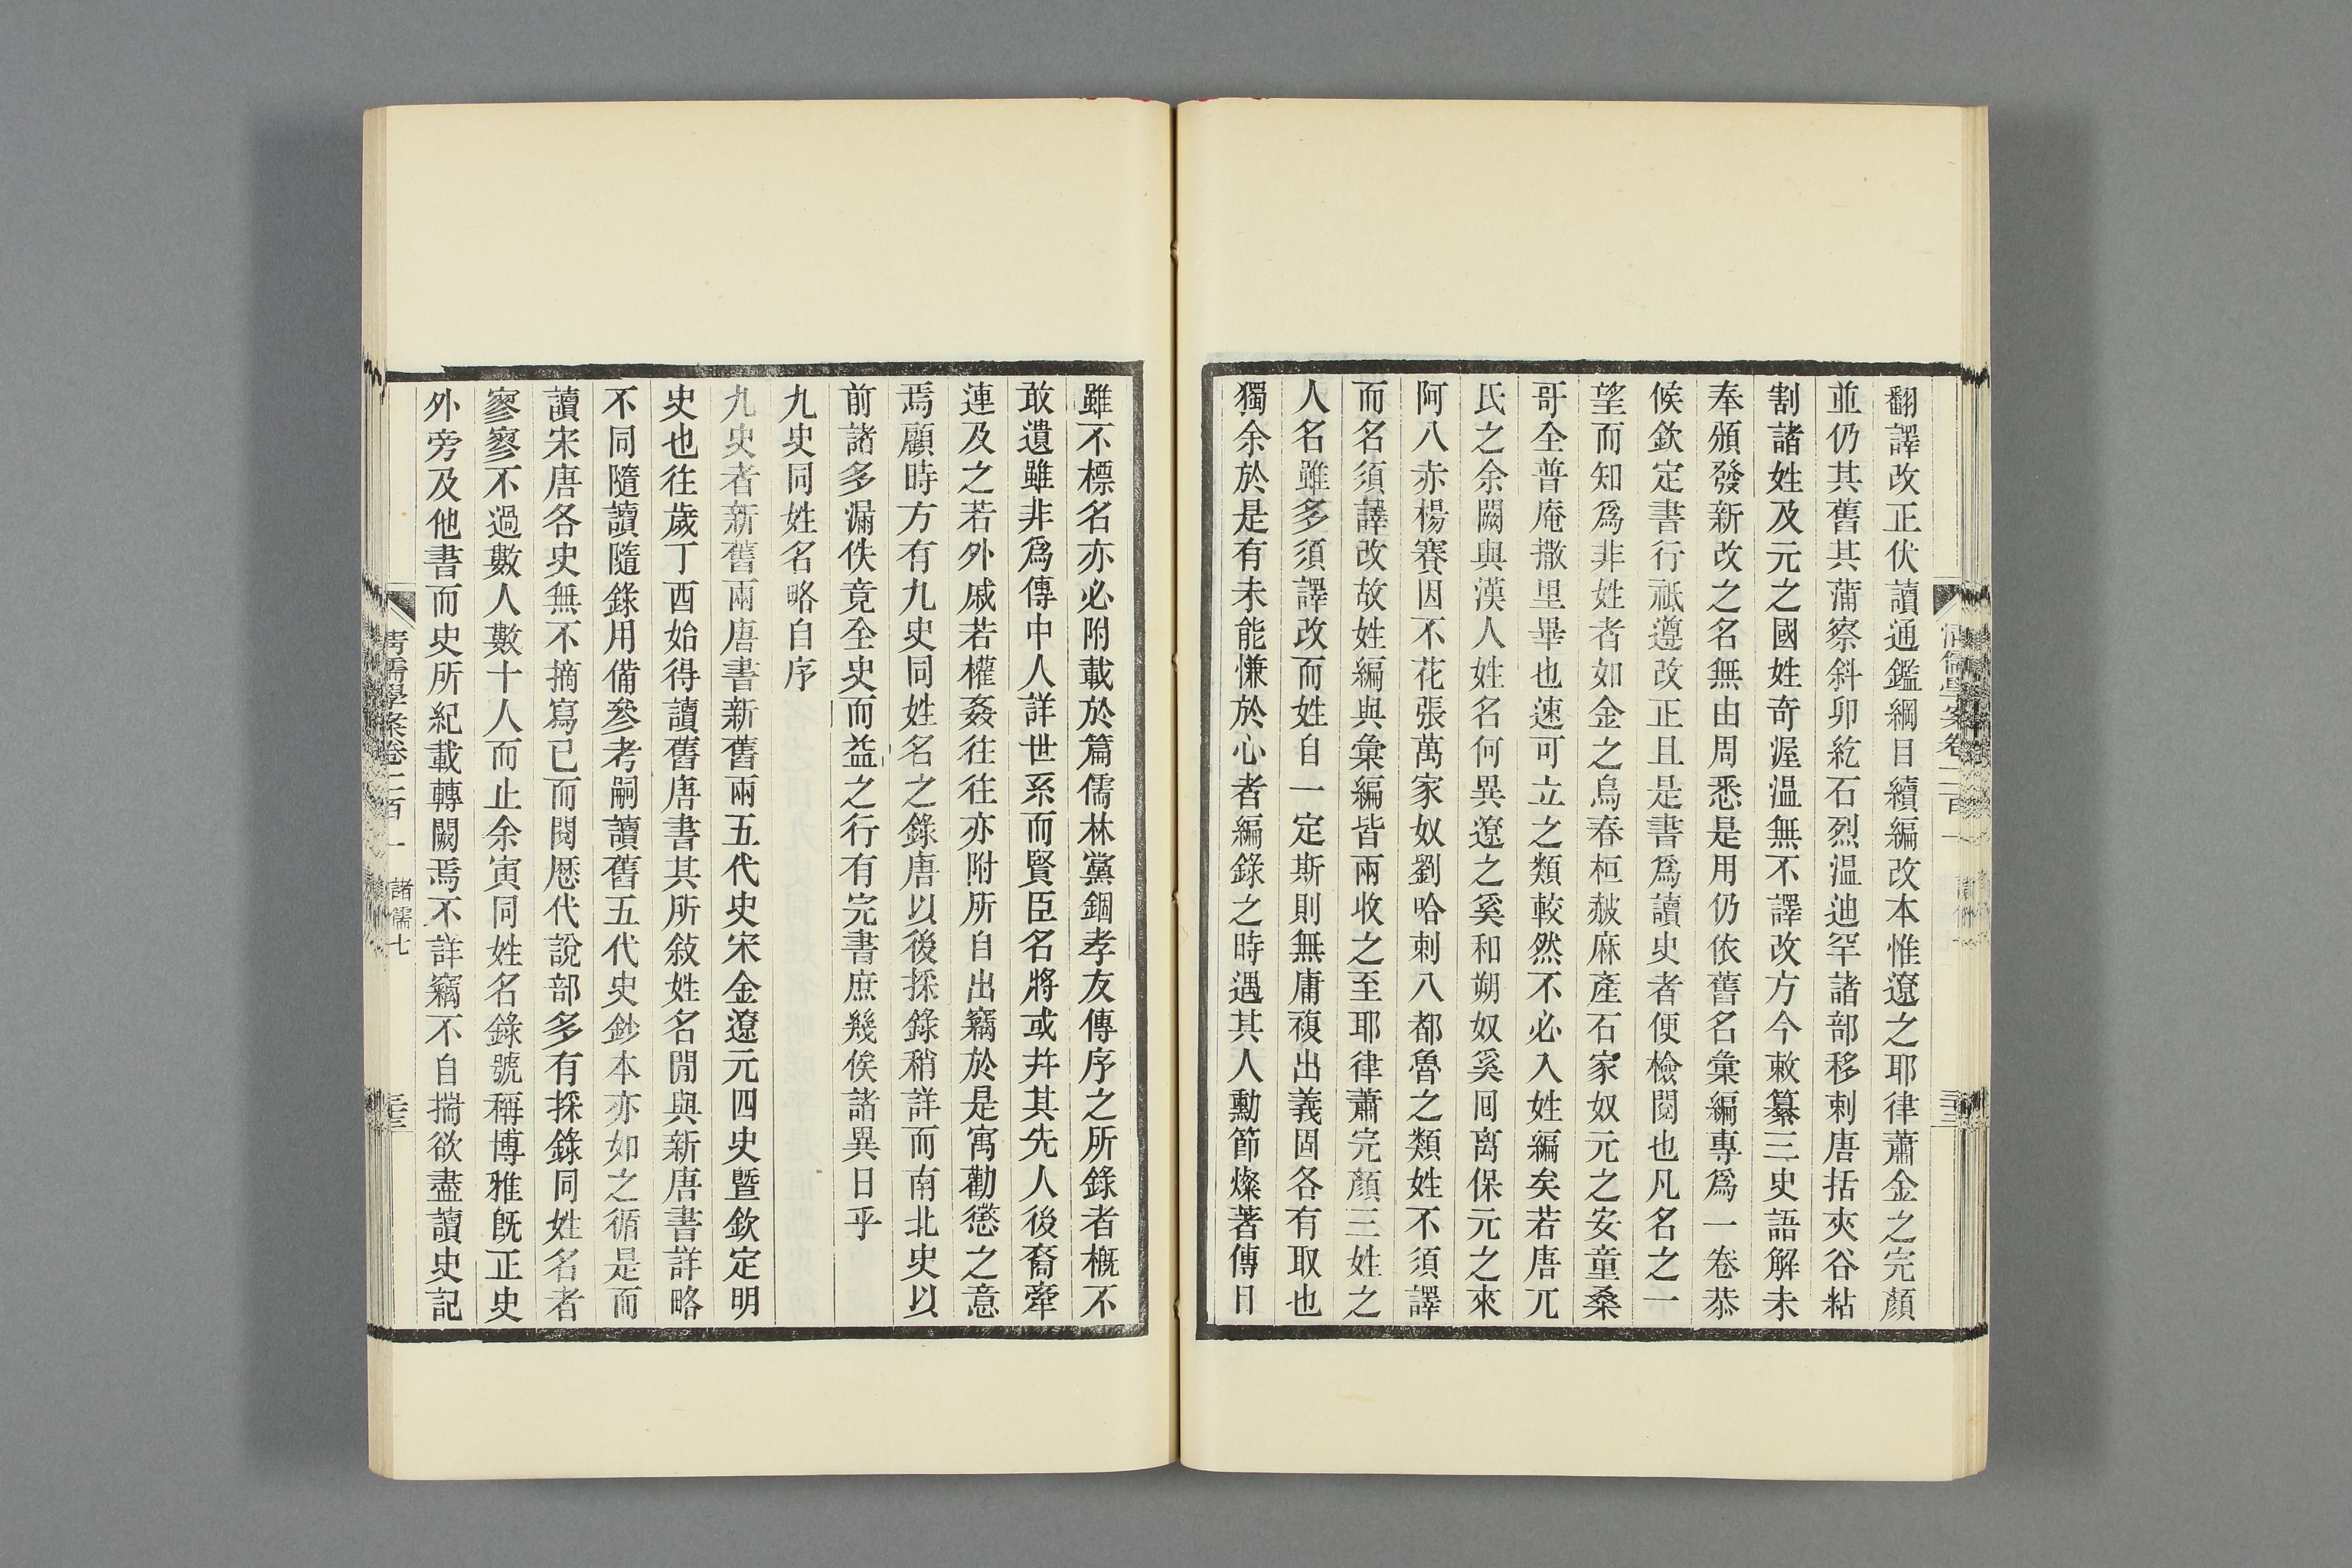 翻譯改正伏讀通鑑綱目續編改本惟遼之耶律蕭金之完顏
並仍其舊其蒲察斜卯紇石烈温迪罕諸部移剌唐括夾谷粘
割諸姓及元之國姓奇渥温無不譯改方今敕纂三史語解未
奉頒發新改之名無由周悉是用仍依舊名彙編專爲一卷恭
候欽定書行祗遵改正且是書爲讀史者便檢閱也凡名之一
望而知爲非姓者如金之烏春桓赧麻產石家奴元之安童桑
哥全普庵撒里畢也速可立之類較然不必入姓編矣若唐兀
氏之余闕與漢人姓名何異遼之奚和朔奴奚囘离保元之來
阿八赤楊賽因不花張萬家奴劉哈剌八都魯之類姓不須譯
而名須譯改故姓編與彙編皆兩收之至耶律蕭完顏三姓之
人名雖多須譯改而姓自一定斯則無庸複出義固各有取也
獨余於是有未能慊於心者編錄之時遇其人勳節燦著傳曰
雖不標名亦必附載於篇儒林黨錮孝友傳序之所錄者概不
敢遺雖非爲傳中人詳世系而賢臣名將或幷其先人後裔牽
連及之若外戚若權姦往往亦附所自出竊於是寓勸懲之意
焉顧時方有九史同姓名之錄唐以後採錄稍詳而南北史以
前諸多漏佚竟全史而益之行有完書庶幾俟諸異日乎
九史同姓名略自序
九史者新舊兩唐書新舊兩五代史宋金遼元四史暨欽定明
史也往歲丁酉始得讀舊唐書其所敍姓名閒與新唐書詳略
不同隨讀隨錄用備參考嗣讀舊五代史鈔本亦如之循是而
讀宋唐各史無不摘寫已而閱厯代說部多有採錄同姓名者
寥寥不過數人數十人而止余寅同姓名錄號稱博雅旣正史
外旁及他書而史所紀載轉闕焉不詳竊不自揣欲盡讀史記
清儒學案卷二百一 諸儒七